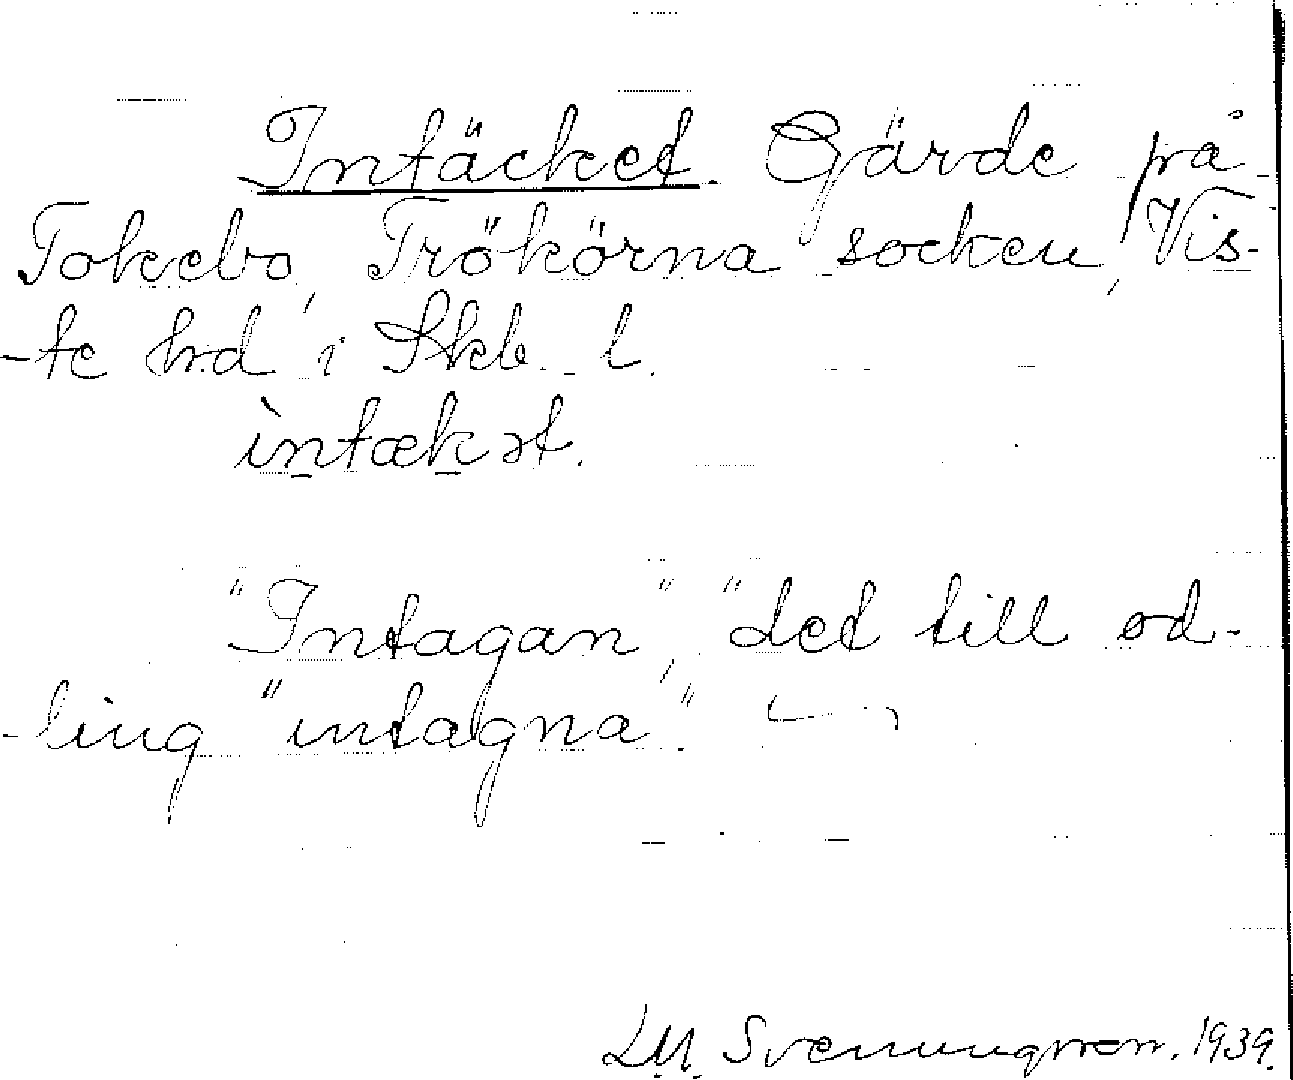 Intäcket. Gärde på
Tokebo, Trökörna socken, Vis-
-te hd i Skb. l.
ìntækət.
"Intagan", "det till od-
-ling "intagna".
L.M. Svenungsson. 1939.